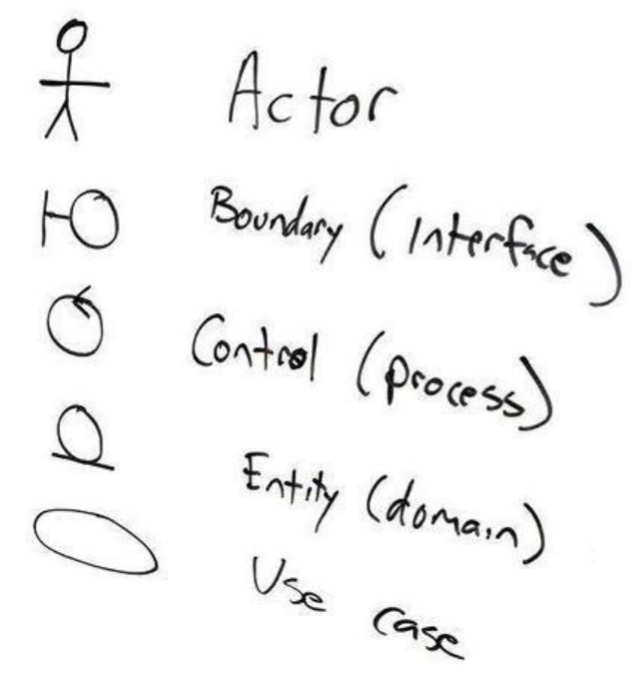 Actor
Boundary (Interface)
Control (process)
Entity (domain)
Use case